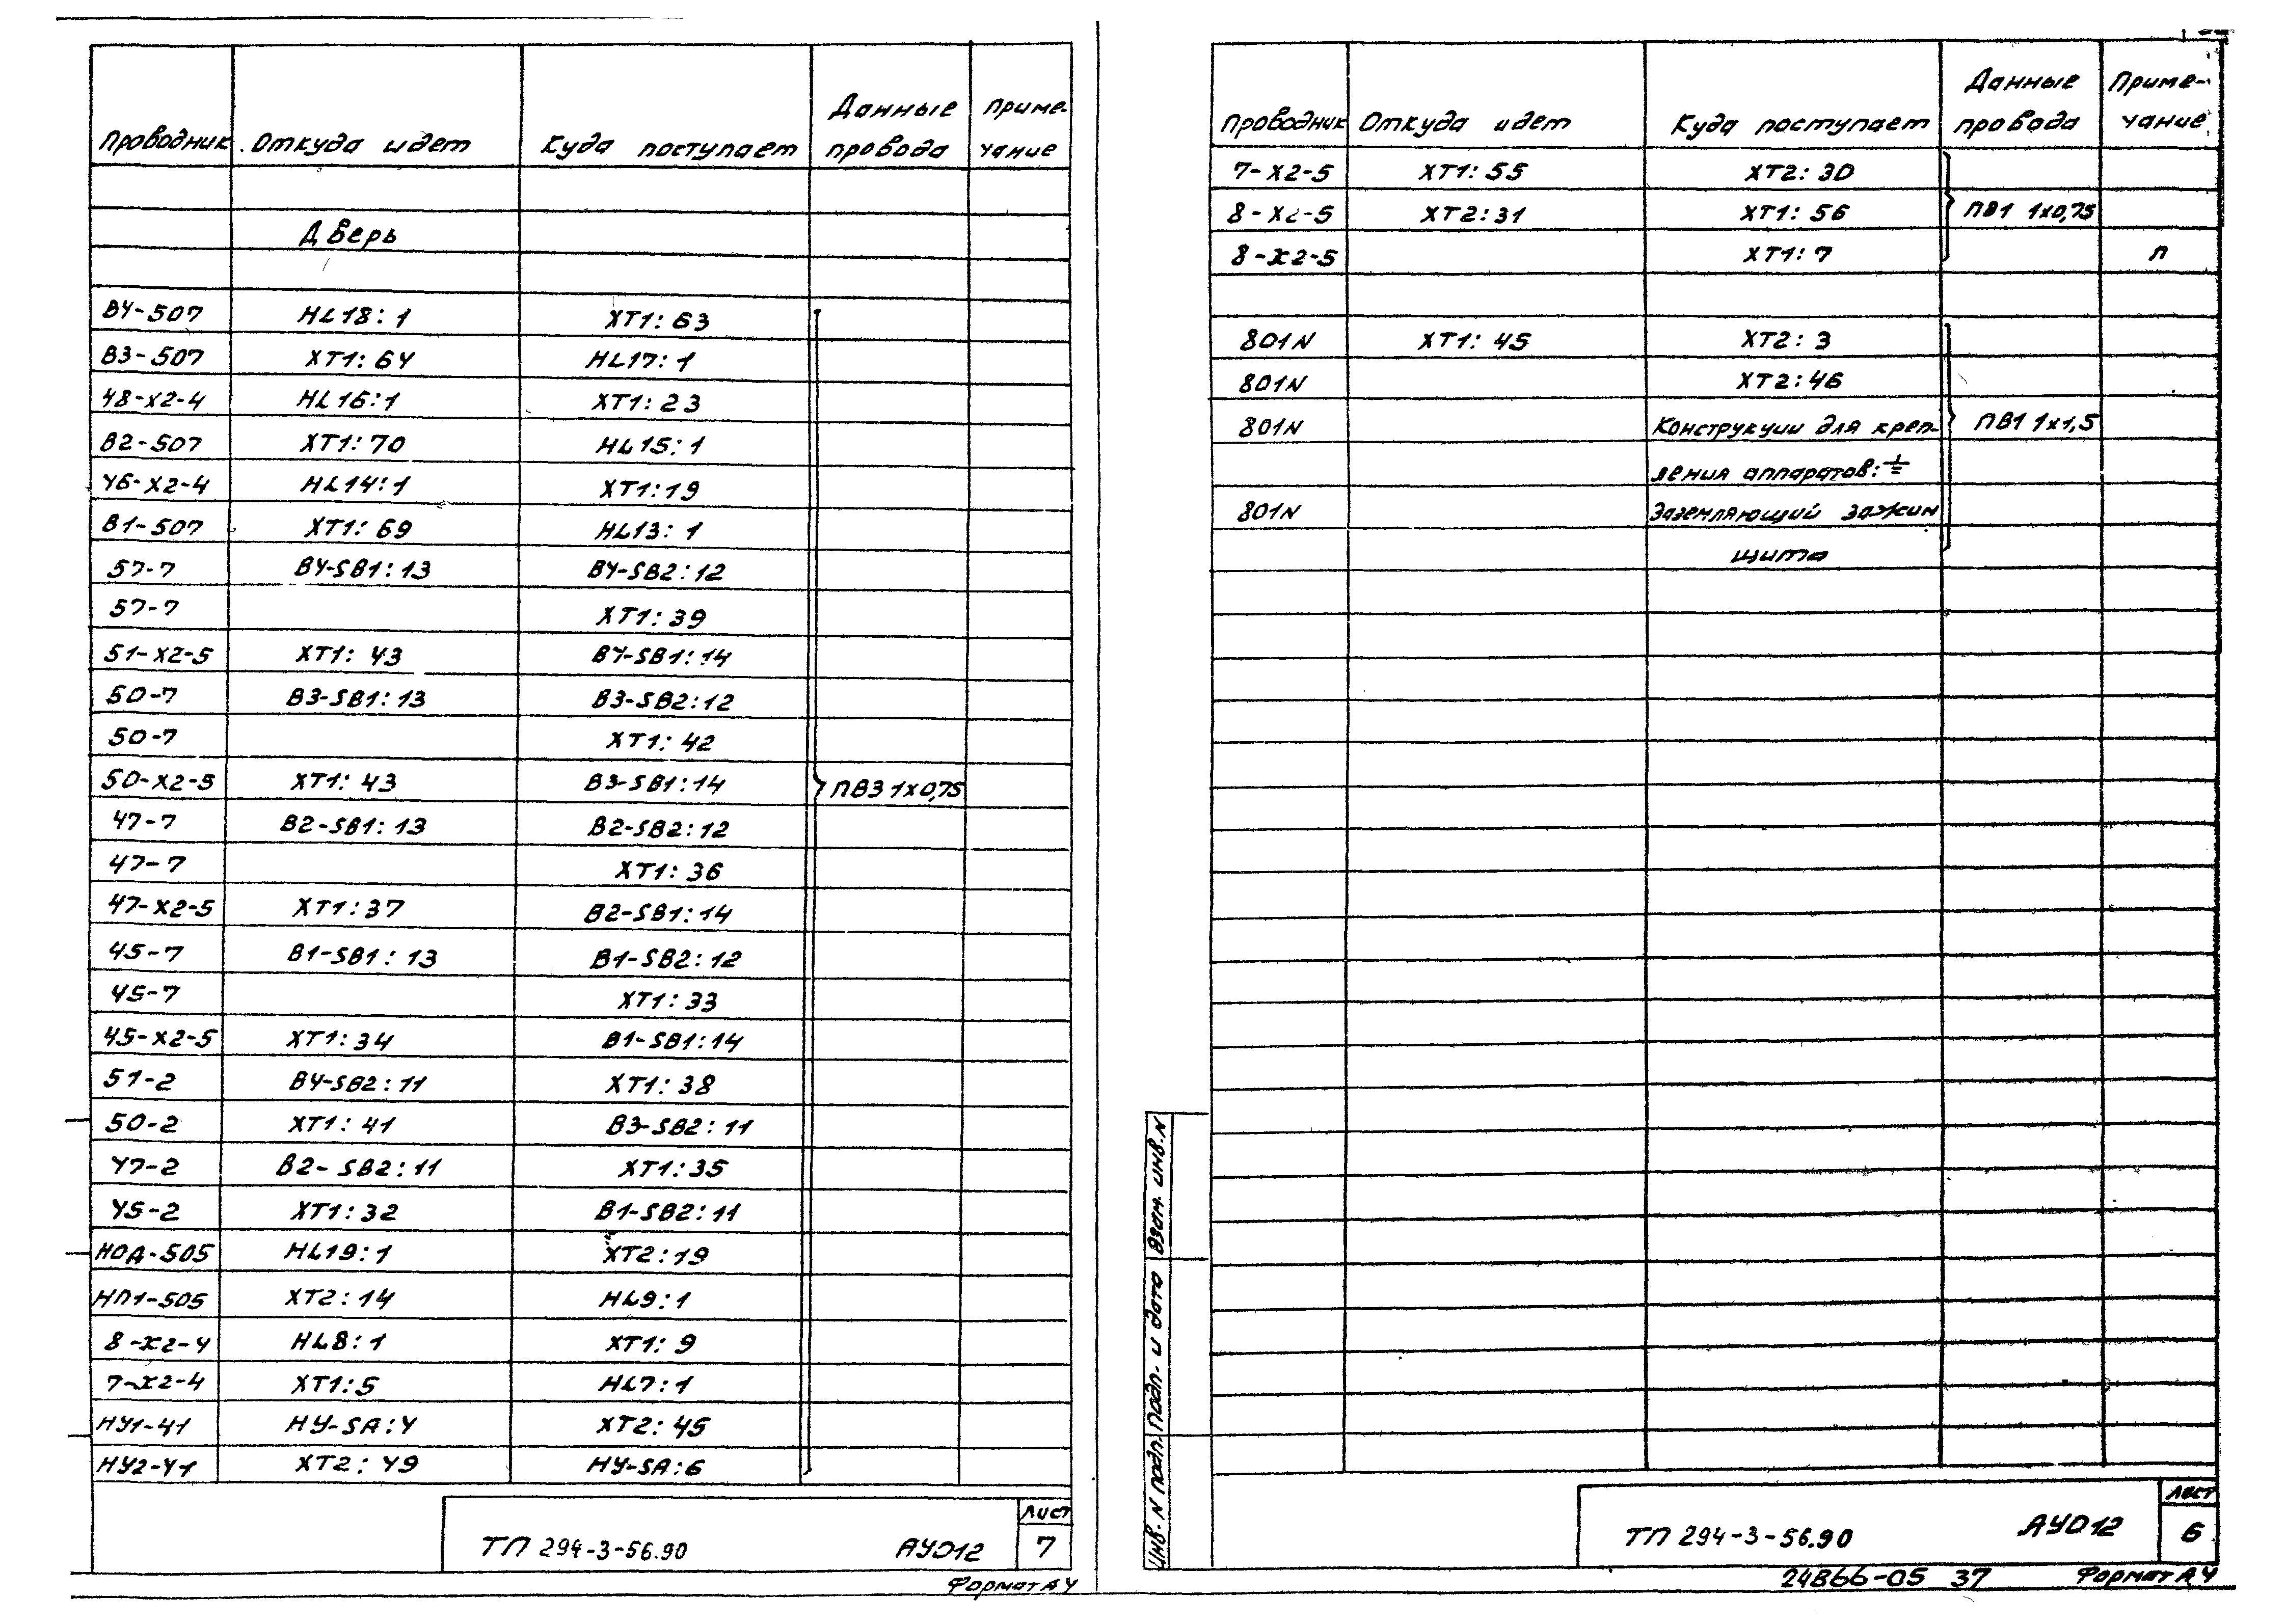 Проводник Откуда идет Куда поступает Данные провода Приме- чание
Дверь
В4-507 HL18:1 XT1:63
В3-507 XT1:64 HL17:1
48-X2-4 HL16:1 XT1:23
В2-507 XT1:70 HL15:1
46-X2-4 HL14:1 XT1:19
В1-507 XT1:69 HL13:1
57-7 В4-SB1:13 В4-SB2:12
57-7 XT1:39
51-X2-5 XT1:43 В4-SB1:14
50-7 В3-SB1:13 В3-SB2:12
50-7 XT1:42
50-X2-5 XT1:43 В3-SB1:14 ПВ3 1x0,75
47-7 В2-SB1:13 В2-SB2:12
47-7 XT1:36
47-X2-5 XT1:37 В2-SB1:14
45-7 В1-SB1:13 В1-SB2:12
45-7 XT1:33
45-X2-5 XT1:34 В1-SB1:14
51-2 В4-SB2:11 XT1:38
50-2 XT1:41 В3-SB2:11
47-2 В2-SB2:11 XT1:35
45-2 XT1:32 В1-SB2:11
НОД-505 HL19:1 XT2:19
НП1-505 XT2:14 HL9:1
8-X2-4 HL8:1 XT1:9
7-X2-4 XT1:5 HL7:1
НУ1-41 НУ-SA:4 XT2:45
НУ2-41 XT2:49 НУ-SA:6
ТП 294-3-56.90 АУД12 Лист 7
Формат А4
Проводник Откуда идет Куда поступает Данные провода Приме- чание
7-X2-5 XT1:55 XT2:30
8-X2-5 XT2:31 XT1:56 ПВ1 1x0,75
8-X2-5 XT1:7 п
801N XT1:45 XT2:3
801N XT2:46
801N Конструкции для креп- ПВ1 1x1,5
ления аппаратов: ⏚
801N Заземляющий зажим
щита
Инв. N подл. Подп. и дата Взам. инв. N
ТП 294-3-56.90 АУД12 Лист 6
24866-05 37 Формат А4